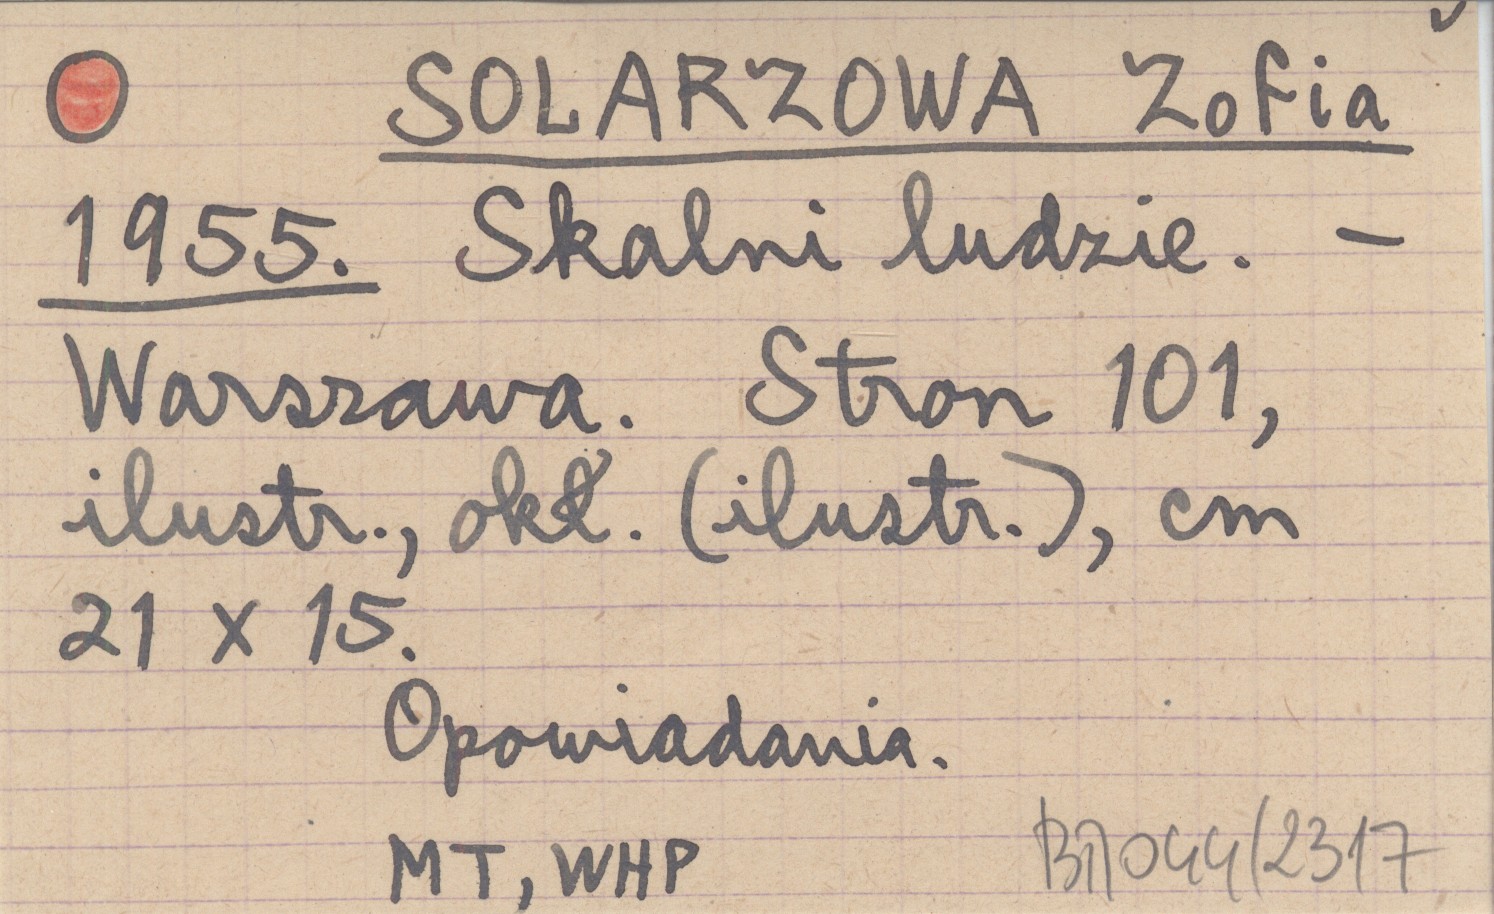 SOLARZOWA Zofia
1955. Skalni ludzie. –
Warszawa. Stron 101,
ilustr., okł. (ilustr.), cm
21 x 15.
Opowiadania.
MT, WHP